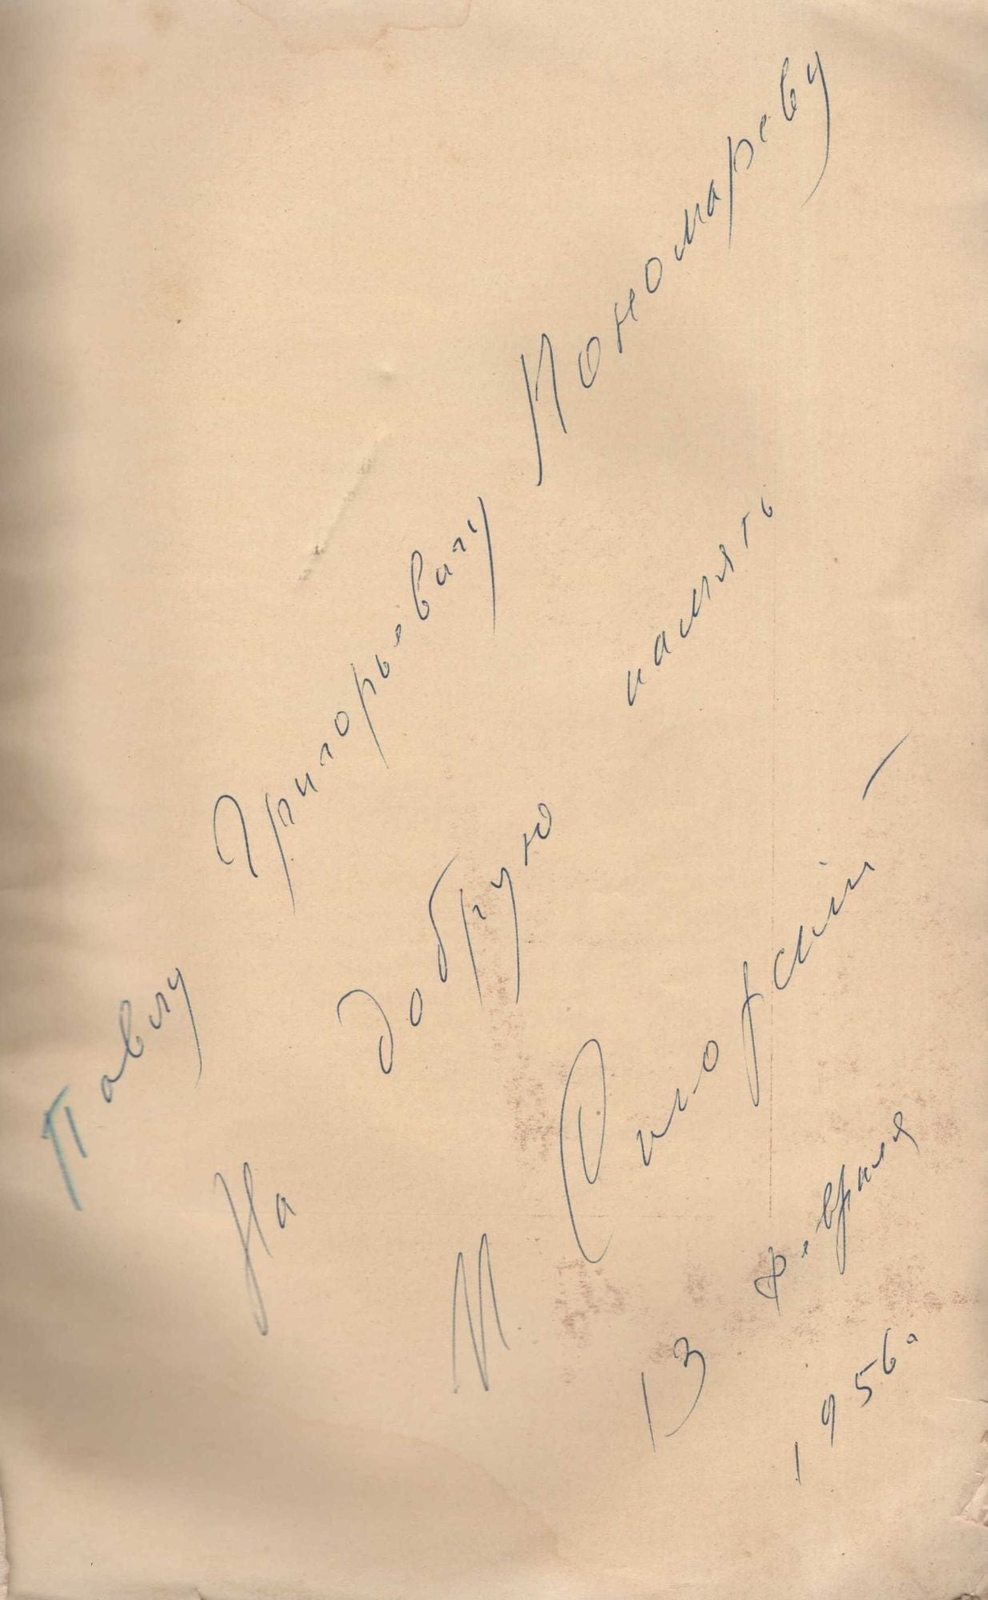 Павлу Григорьевичу Пономареву
На добрую память
И Сикорский
13 февраля
1956